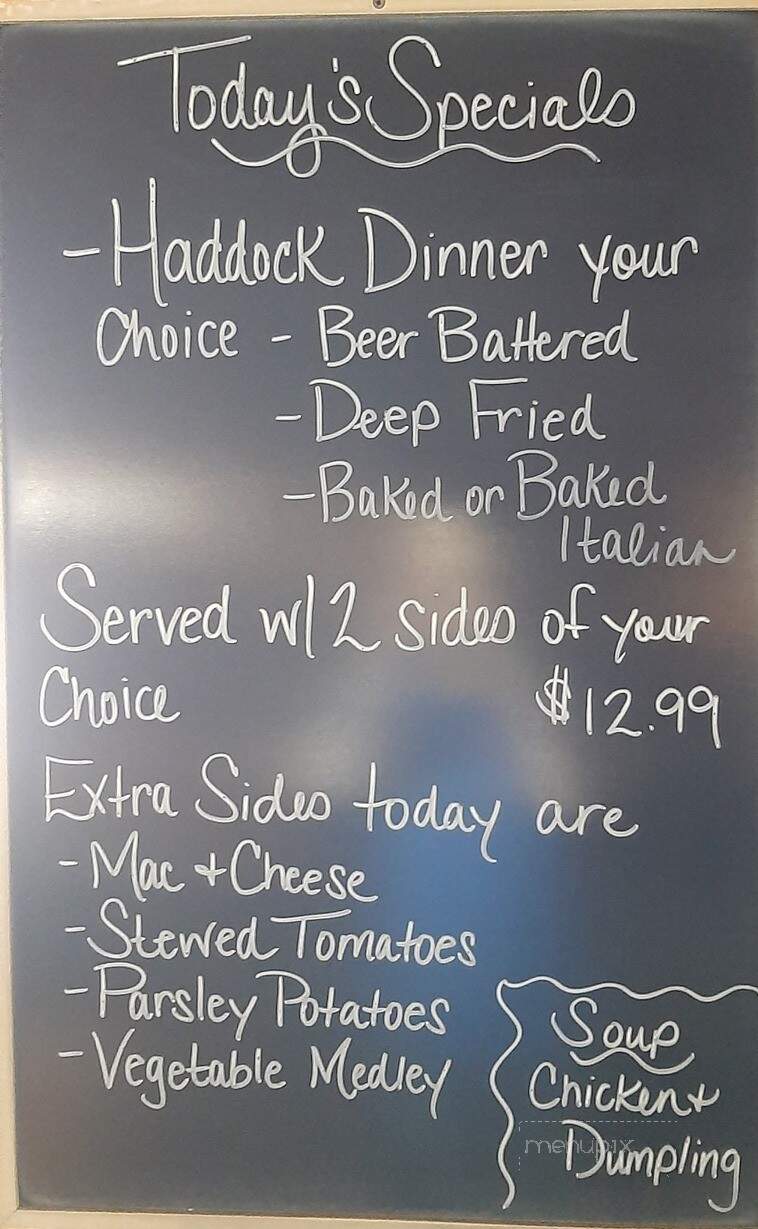 Today's Specials
- Haddock Dinner your
Choice - Beer Battered
- Deep Fried
- Baked or Baked
Italian
Served w/2 sides of your
Choice $12.99
Extra Sides today are
- Mac + Cheese
- Stewed Tomatoes
- Parsley Potatoes
- Vegetable Medley
Soup
Chicken +
Dumpling
menupix